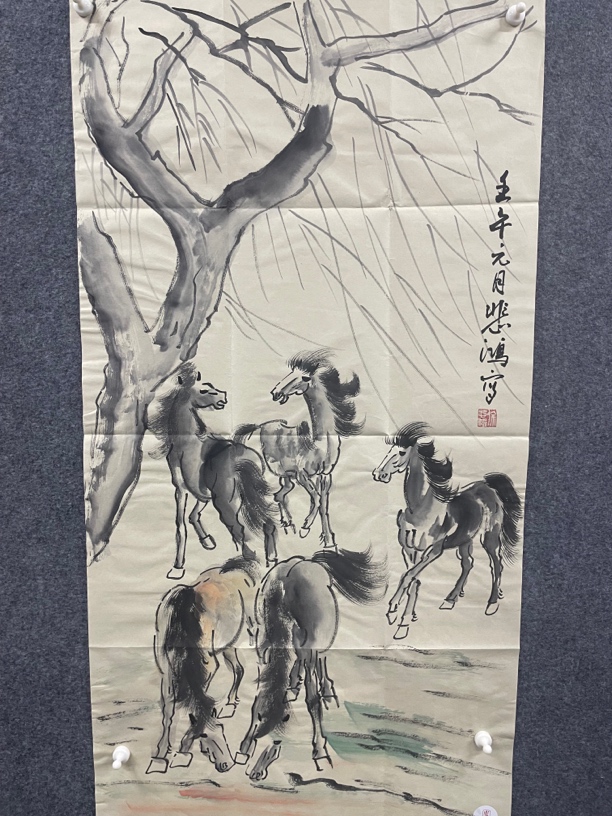 壬午元月悲鴻寫